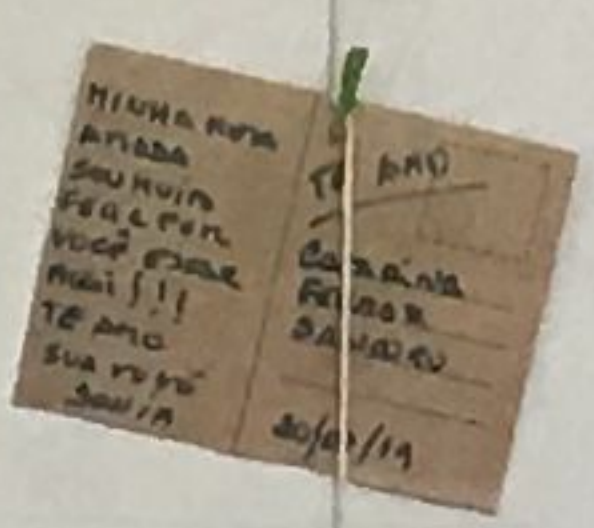 MINHA
AMADA
SOU MUITO
FELIZ POR
VOCÊ ESTAR
AQUI!!!
TE AMO
SUA VOVÓ
SONIA
TE AMO
CATARINA
20/ /19